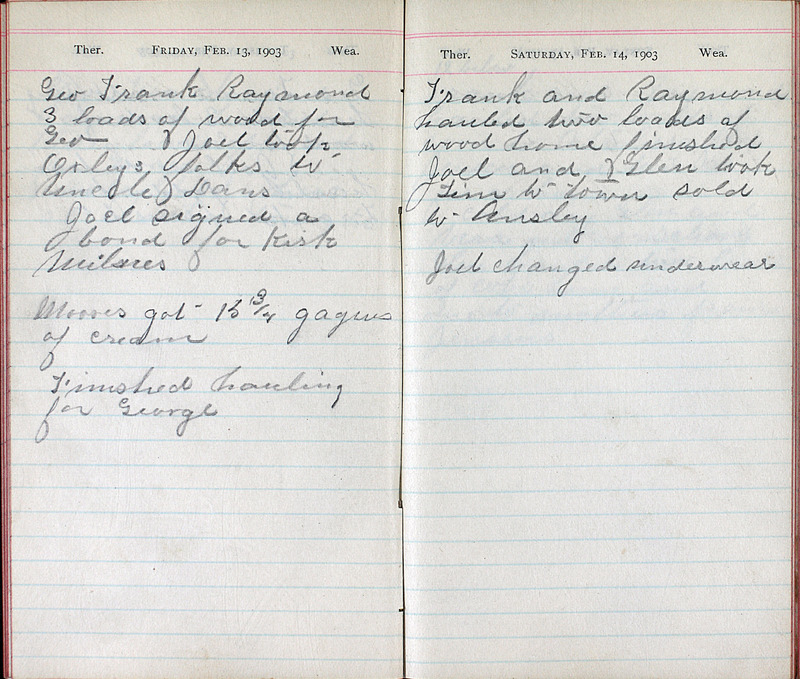 Ther. FRIDAY, FEB. 13, 1903 Wea.
Geo Frank Raymond
3 loads of wood for
Geo Joel took
Oxleys folks to
Uncle Dans
Joel signed a
bond for Kirk
Moores got 13 3/4 gagues
of cream
Finished hauling
for George
Ther. SATURDAY, FEB. 14, 1903 Wea.
Frank and Raymond
hauled two loads of
wood home finished
Joel and Glen took
Tim to town sold
to Ansley
Joel changed underwear